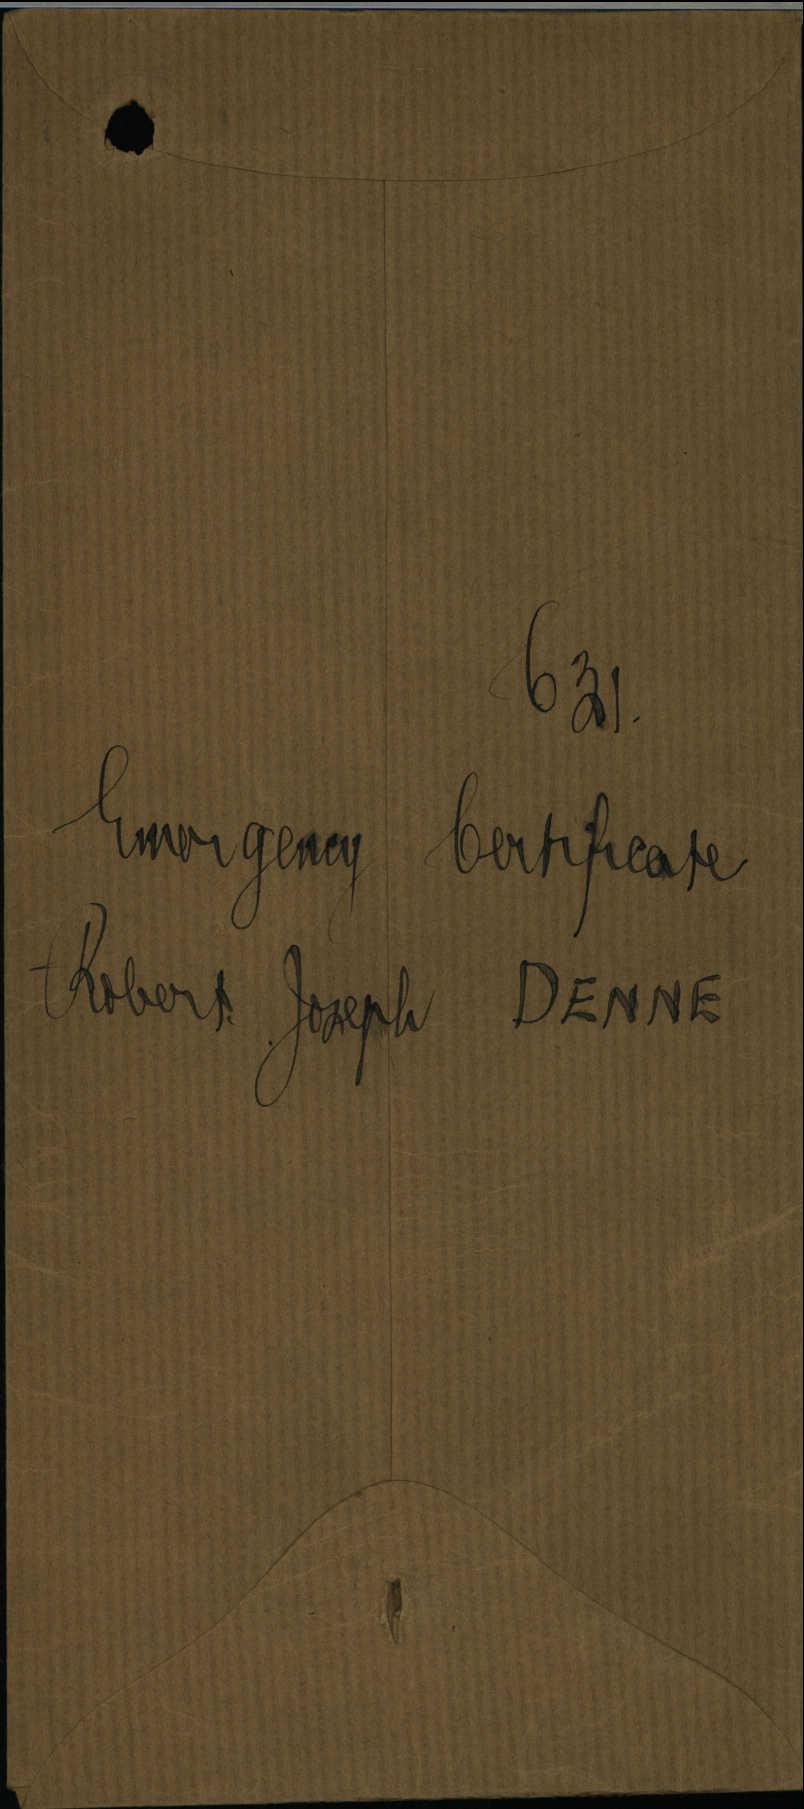 631.
Emergency Certificate
Robert Joseph DENNE